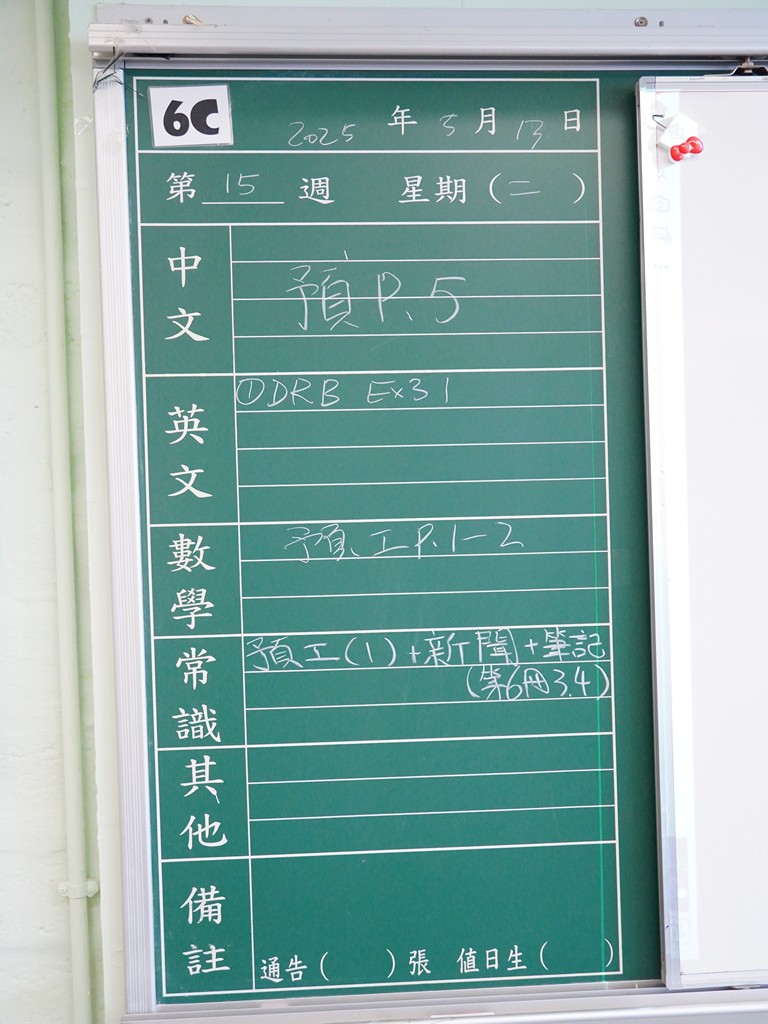 6C
2025 年 5 月 13 日
第 15 週 星期（二）
中文
預 P. 5
英文
①DRB Ex31
數學
預、工 P. 1-2
常識
預工(1)+新聞+筆記
(第6冊3.4)
其他
備註
通告（ ）張 值日生（ ）